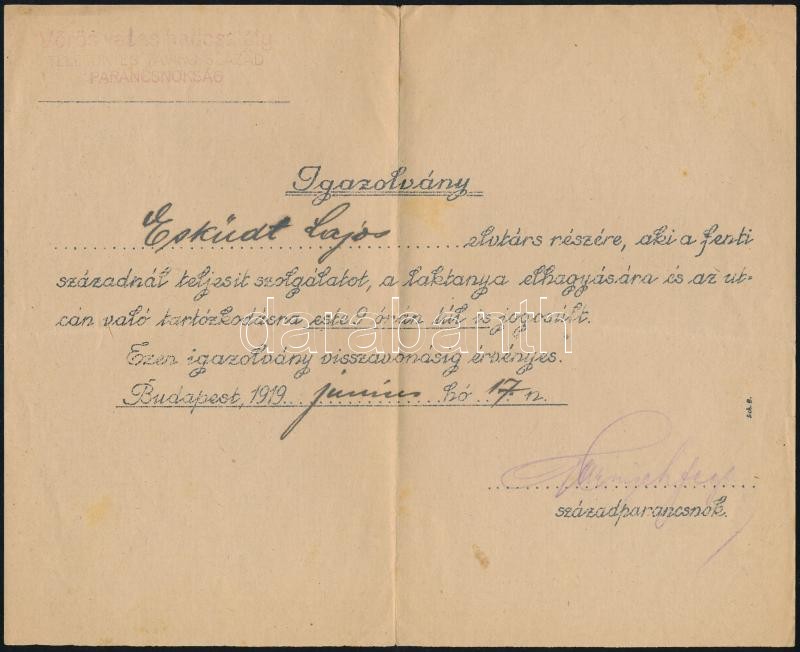 Vörös vates hadosztály
PARANCSNOKSÁG
Igazolvány
Esküdt Lajos elvtárs részére, aki a fenti
századnál teljesit szolgálatot, a laktanya elhagyására és az ut-
cán való tartózkodásra este 9 órán túl is jogosult.
Ezen igazolvány visszavonásig érvényes.
Budapest, 1919. junius hó 17. n.
Sch. B.
századparancsnok.
darabanth